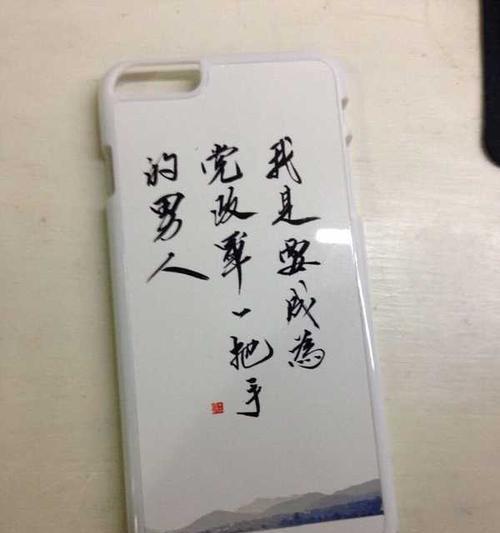 我是要成為
党政軍一把手
的男人